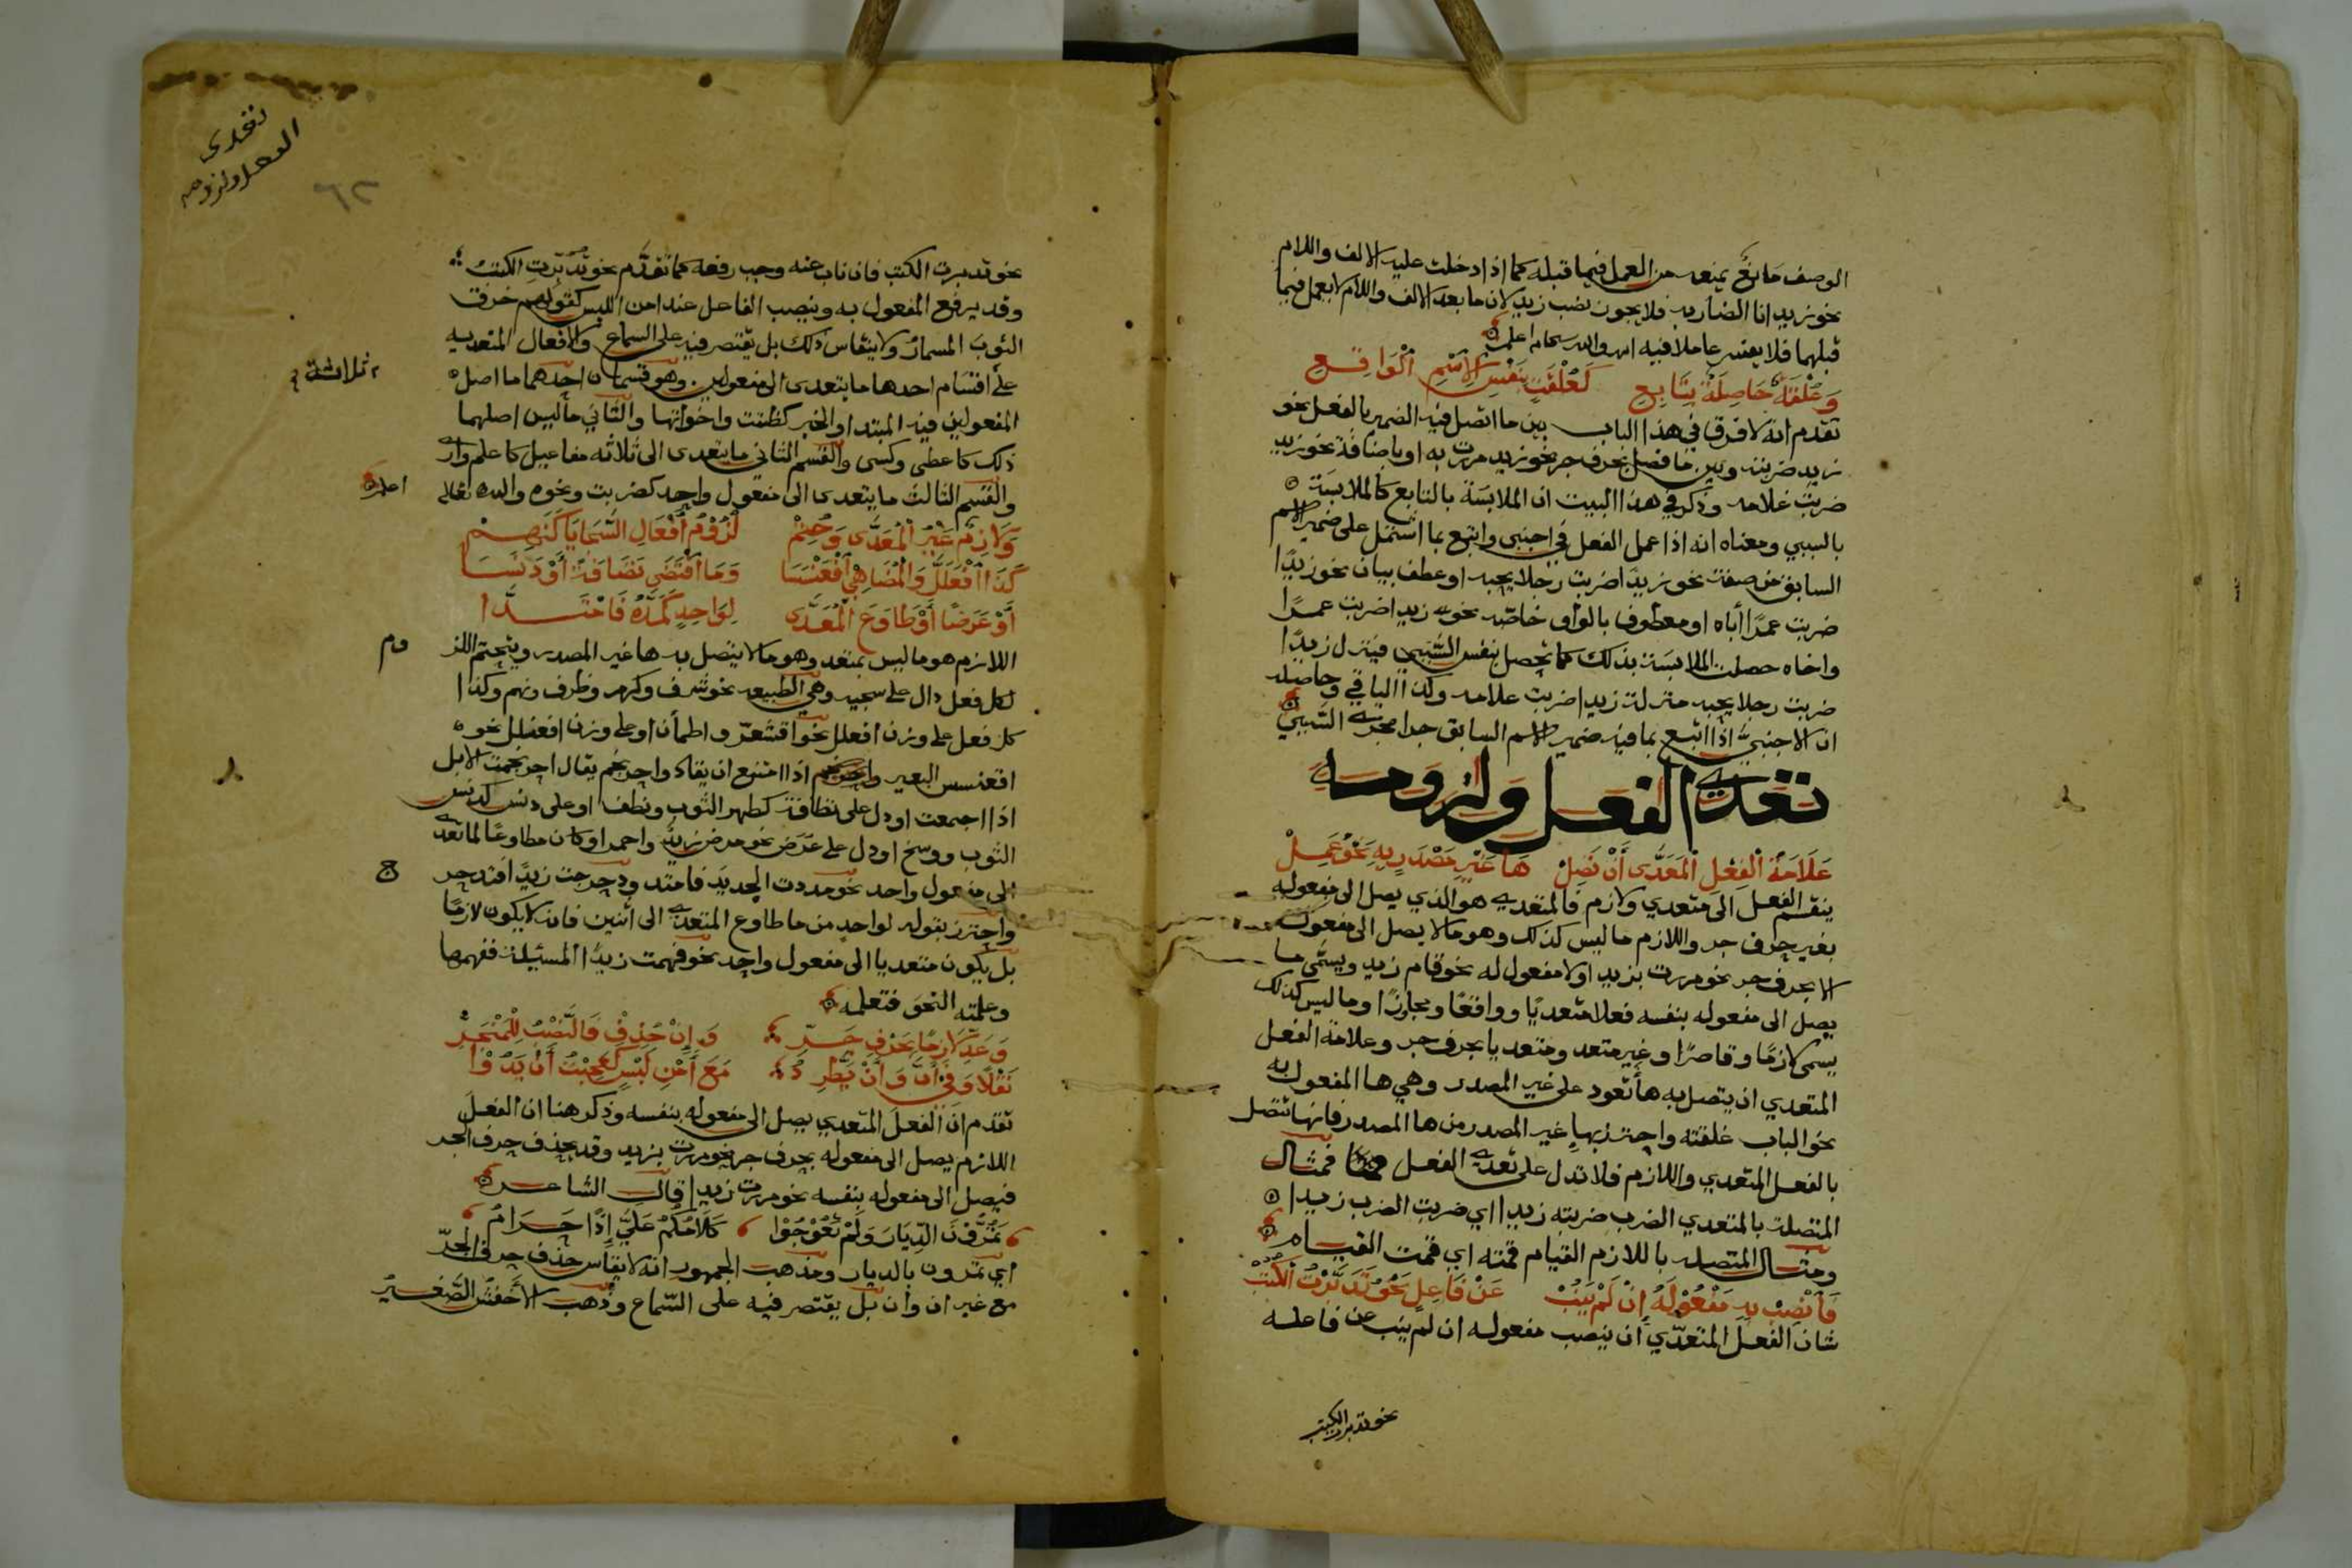 الوصف مانع يمنعه من العمل فيما قبله كما اذا دخلت عليه الالف واللام
نحو زيد انا الضاربه فلا يجوز نصب زيد لان ما بعد الالف واللام لا يعمل فيما
قبلهما فلا يفسر عاملا فيه والله سبحانه اعلم
وَعُلْقَةٌ حَاصِلَةٌ بِتَابِعِ كَعُلْقَةٍ بِنَفْسِ الاِسْمِ الْوَاقِعِ
تقدم انه لا فرق في هذا الباب بين ما اتصل فيه الضمير بالفعل نحو
زيد ضربته وبين ما فصل بحرف جر نحو زيد مررت به او باضافة نحو زيد
ضربت غلامه وذكر في هذا البيت ان الملابسة بالتابع كالملابسة
بالسببي ومعناه انه اذا عمل الفعل في اجنبي واتبع بما اشتمل على ضمير الاسم
السابق من صفة نحو زيدًا ضربت رجلا يحبه او عطف بيان نحو زيدًا
ضربت عمرًا أباه او معطوف بالواو خاصة نحو زيدا ضربت عمرًا
واخاه حصلت الملابسة بذلك كما تحصل بنفس السّببي فينزل زيدًا
ضربت رجلا يحبه منزلة زيدا ضربت غلامه وكذا الباقي وحاصله
ان الاجنبيَّ اذا اتبع بما فيه ضمير الاسم السابق جرا مجرى السّببي
تعدي الفعل ولزومه
عَلَامَةُ الفِعْلِ الْمُعَدَّى أَنْ تَصِلْ هَا غَيْرِ مَصْدَرٍ بِهِ نَحْوُ عَمِلْ
ينقسم الفعل الى متعدي ولازم فالمتعدي هو الذي يصل الى مفعوله
بغير حرف جر واللازم ما ليس كذلك وهو ما لا يصل الى مفعوله
الا بحرف جر نحو مررت بزيد او لا مفعول له نحو قام زيد ويسمّى ما
يصل الى مفعوله بنفسه فعلا متعديًا وواقعًا ومجاوزًا وما ليس كذلك
يسمى لازمًا وقاصرًا وغير متعد ومتعديا بحرف جر وعلامة الفعل
المتعدي ان يتصل به ها تعود على غير المصدر وهي ها المفعول به
نحو الباب غلقته واحترز بها غير المصدر من ها المصدر فانها تتصل
بالفعل المتعدي واللازم فلا تدل على تعدي الفعل فمثال
المتصلة بالمتعدي الضرب ضربته زيدا اي ضربت الضرب زيدا
ومثال المتصله باللازم القيام قمته اي قمت القيام
فَانْصِبْ بِهِ مَفْعُوْلَهُ إِنْ لَمْ يَنُبْ عَنْ فَاعِلٍ نَحْوُ تَدَبَّرْتُ الكُتُبْ
شان الفعل المتعدّي أن ينصب مفعوله ان لم ينب عن فاعله
نحو تدبرت الكتب
تعدى
الفعل ولزومه
٦٢
نحو تدبرت الكتب فان ناب عنه وجب رفعه كما تقدّم نحو تُدُبّرتِ الكتبُ
وقد يرفع المفعول به وينصب الفاعل عند امن اللبس كقولهم خرق
الثوبَ المسمارُ ولا ينقاس ذلك بل يقتصر فيه على السماع والافعال المتعديه
على اقسام احدها ما يتعدى الى مفعولين وهو قسمان احدهما ما اصل
ثلاثة
المفعولين فيه المبتدا والخبر كظننت واخواتها والثاني ما ليس اصلهما
ذلك كاعطى وكسى والقسم الثاني ما يتعدى الى ثلاثة مفاعيل كاعلم وارى
والقسم الثالث ما يتعدى الى مفعول واحد كضربت ونحوه والله تعالى
اعلم
وَلَازِمٌ غَيْرُ الْمُعَدَّى وَحُتِمْ لُزُوْمُ أَفْعَالِ السَّجَايَا كَنَهِمْ
كَذَا افْعَلَلَّ وَالْمُضَاهِي اقْعَنْسَسَا وَمَا اقْتَضَى نَظَافَةً أَوْ دَنَسَا
أَوْ عَرَضًا أَوْ طَاوَعَ الْمُعَدَّى لِوَاحِدٍ كَمَدَّهُ فَامْتَدَّا
اللازم هو ما ليس بمتعد وهو ما لا يتصل به ها غير المصدر ويتحتم اللز
وم
لكل فعل دال على سجيه وهي الطبيعه نحو شرف وكرم وظرف ونهم وكذا
كل فعل على وزن افعلل نحو اقشعرّ واطمأن او على وزن افعنلل نحو
اقعنسس البعير اذا امتنع ان يقاد واحرنجم يقال احرنجمت الابل
اذا اجتمعت او دل على نظافة كطهر الثوب ونظف او على دنس كدنس
الثوب ووسخ او دل على عَرَض نحو مرض زيدٌ واحمر او كان مطاوعًا لما تعدى
الى مفعول واحد نحو مددت الحديد فامتد ودحرجت زيدًا فتدحر
ج
واحترز بقوله لواحد من ما طاوع المتعدي الى اثنين فانه لا يكون لازمًا
بل يكون متعديا الى مفعول واحد نحو فهمت زيدًا المسئلة ففهمها
وعلمته النحو فتعلمه
وَعَدِّ لَازِمًا بِحَرْفِ جَرِّ وَإِنْ حُذِفْ فَالنَّصْبُ لِلْمُنْجَرِّ
نَقْلًا وَفِي أَنَّ وَأَنْ يَطَّرِدُ مَعَ أَمْنِ لَبْسٍ كَعَجِبْتُ أَنْ يَدُوْا
تقدم ان الفعل المتعدي يصل الى مفعوله بنفسه وذكر هنا ان الفعل
اللازم يصل الى مفعوله بحرف جر نحو مررت بزيد وقد يحذف حرف الجر
فيصل الى مفعوله بنفسه نحو مررت زيدا قال الشاعر
تَمُرُّوْنَ الدِّيَارَ وَلَمْ تَعُوْجُوْا كَلَامُكُمُ عَلَيَّ إِذًا حَرَامُ
اي تمرون بالديار ومذهب الجمهور انه لا يقاس حذف حرف الجرّ
مع غير ان وأن بل يقتصر فيه على السّماع وذهب الأخفش الصّغير